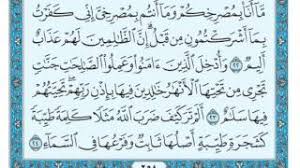 مَّآ أَنَا۠ بِمُصْرِخِكُمْ وَمَآ أَنتُم بِمُصْرِخِىَّ إِنِّى كَفَرْتُ
بِمَآ أَشْرَكْتُمُونِ مِن قَبْلُ إِنَّ ٱلظَّـٰلِمِينَ لَهُمْ عَذَابٌ
أَلِيمٌ ٢٢ وَأُدْخِلَ ٱلَّذِينَ ءَامَنُوا۟ وَعَمِلُوا۟ ٱلصَّـٰلِحَـٰتِ جَنَّـٰتٍ
تَجْرِى مِن تَحْتِهَا ٱلْأَنْهَـٰرُ خَـٰلِدِينَ فِيهَا بِإِذْنِ رَبِّهِمْ تَحِيَّتُهُمْ
فِيهَا سَلَـٰمٌ ٢٣ أَلَمْ تَرَ كَيْفَ ضَرَبَ ٱللَّهُ مَثَلًا كَلِمَةً طَيِّبَةً
كَشَجَرَةٍ طَيِّبَةٍ أَصْلُهَا ثَابِتٌ وَفَرْعُهَا فِى ٱلسَّمَآءِ ٢٤
٢٥٨